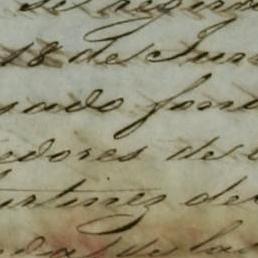 se
18 de Jun
sado fon
edores de l
artinez de
de la